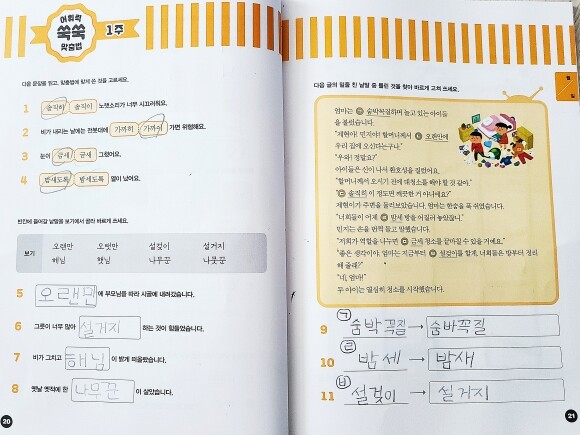 어휘력
쑥쑥
맞춤법
1주
다음 문장을 읽고, 맞춤법에 맞게 쓴 것을 고르세요.
1 솔직히 솔직이 노랫소리가 너무 시끄러워요.
2 비가 내리는 날에는 전봇대에 가까히 가까이 가면 위험해요.
3 눈이 금세 금새 그쳤어요.
4 밤세도록 밤새도록 열이 났어요.
빈칸에 들어갈 낱말을 보기에서 골라 바르게 쓰세요.
보기 오랜만 오랫만 설겆이 설거지
해님 햇님 나무꾼 나뭇꾼
5 오랜만 에 부모님을 따라 시골에 내려갔습니다.
6 그릇이 너무 많아 설거지 하는 것이 힘들었습니다.
7 비가 그치고 해님 이 밝게 떠올랐습니다.
8 옛날 옛적에 한 나무꾼 이 살았습니다.
20
다음 글의 밑줄 친 낱말 중 틀린 것을 찾아 바르게 고쳐 쓰세요.
월
일
엄마는 ㉠ 숨박꼭질하며 놀고 있는 아이들
을 불렀습니다.
"재현아! 민지야! 할머니께서 ㉡ 오랜만에
우리 집에 오신다는구나."
"우와! 정말요?"
아이들은 신이 나서 환호성을 질렀어요.
"할머니께서 오시기 전에 대청소를 해야 할 것 같아."
"㉢ 솔직히 이 정도면 깨끗한 거 아니에요?"
재현이가 주변을 둘러보았습니다. 엄마는 한숨을 푹 쉬었습니다.
"너희들이 어제 ㉣ 밤세 방을 어질러 놓았잖니."
민지는 손을 번쩍 들고 말했습니다.
"저희가 역할을 나누면 ㉤ 금세 청소를 끝마칠 수 있을 거예요."
"좋은 생각이야. 엄마는 지금부터 ㉥ 설겆이를 할게. 너희들은 방부터 정리
해 줄래?"
"네, 엄마!"
두 아이는 열심히 청소를 시작했습니다.
9 ㉠ 숨박꼭질 → 숨바꼭질
10 ㉣ 밤세 → 밤새
11 ㉥ 설겆이 → 설거지
21